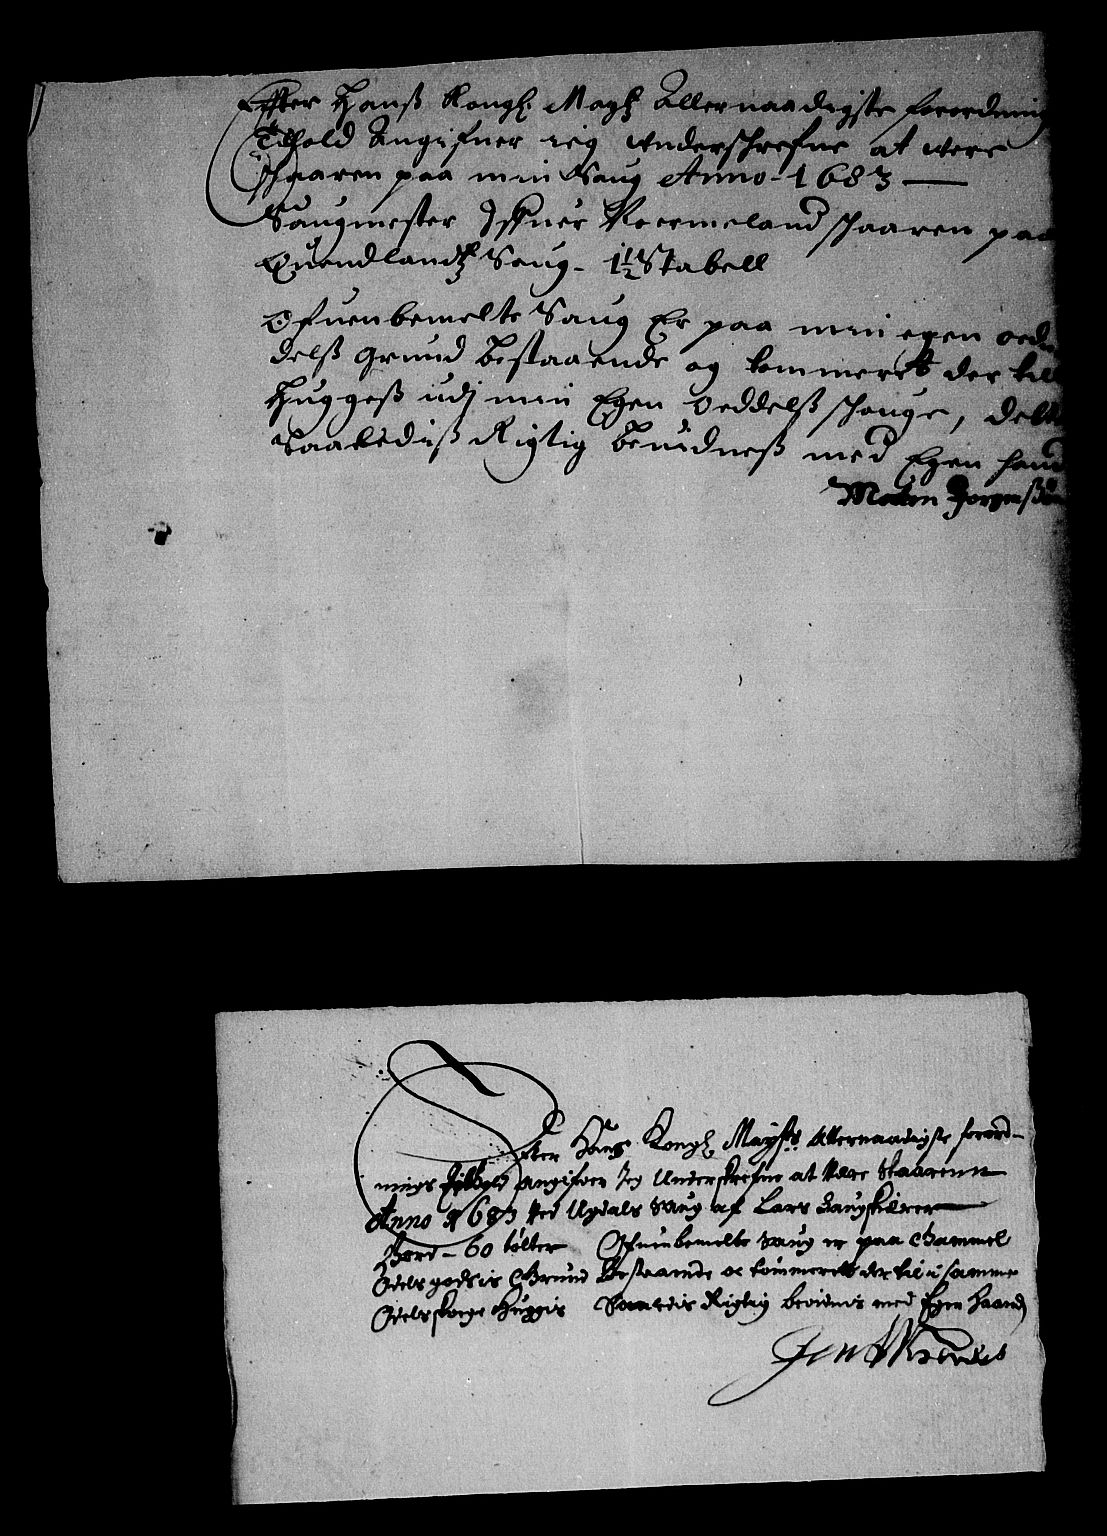 Effter Hanß Kongl: Mayſt Allernaadigste forordning
Indhold Angifuer ieg underschrefne at were
schaaren paa min Saug Anno 1683
Saugmester Iffuer Voermeland schaaren paa
Quendlandß Saug - 1½ Stabell
Ofuenbemelte Saug Er paa min egen oed
delß grund bestaaende og tømmeret der till
huggeß udj min Egen oeddelß schouge, dette
Saaledeß Rigtig beuidneß med Egen hand
Morten Jørgensøn
Efter Hans Kongl Mayst: Allernaadigste forord-
nings Jndhold angifuer Jeg Underskrefne at være Skaarenn
Anno 1683 ved Updals Saug af Lars Saugskiærer
Bord - 60 tolter Ofuenbemelte Saug er paa Gammel
Odelsgodsis Grund Bestaaende oc tømmeret der til i samme
Odelskouge Huggis Saaledis Rigtig bevidnis med Egen Haand